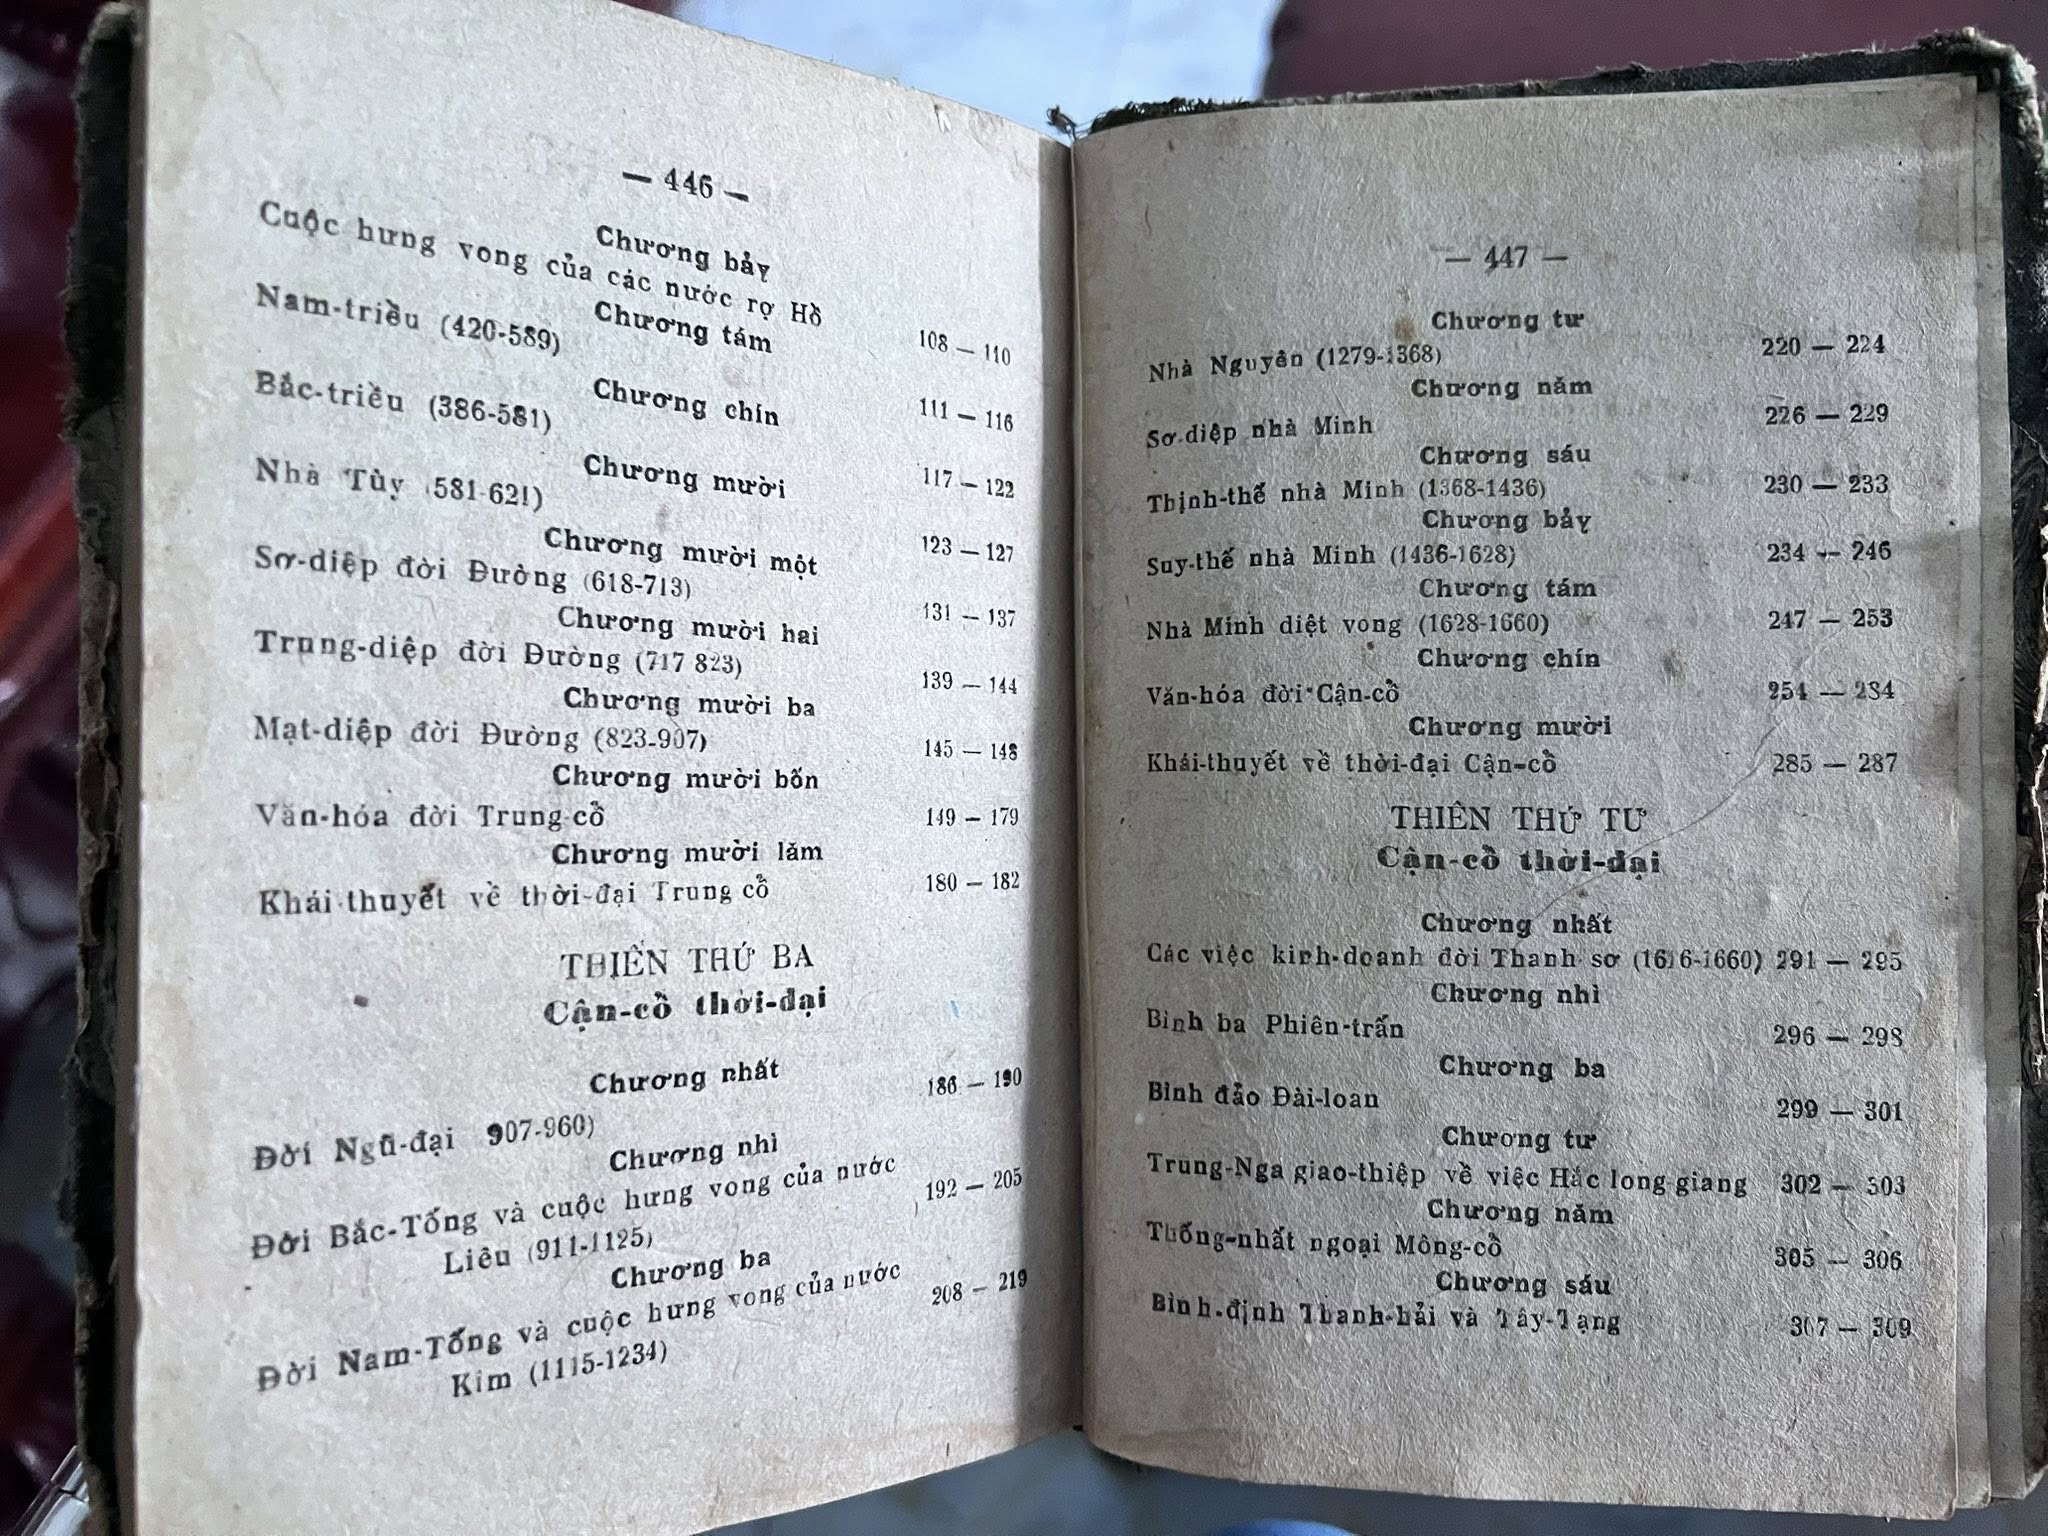 — 446 —
Chương bảy
Cuộc hưng vong của các nước rợ Hồ 108 — 110
Chương tám
Nam-triều (420-589) 111 — 116
Chương chín
Bắc-triều (386-581) 117 — 122
Chương mười
Nhà Tùy (581-621) 123 — 127
Chương mười một
Sơ-diệp đời Đường (618-713) 131 — 137
Chương mười hai
Trung-diệp đời Đường (717 823) 139 — 144
Chương mười ba
Mạt-diệp đời Đường (823-907) 145 — 148
Chương mười bốn
Văn-hóa đời Trung-cổ 149 — 179
Chương mười lăm
Khái-thuyết về thời-đại Trung cổ 180 — 182
THIÊN THỨ BA
Cận-cổ thời-đại
Chương nhất
Đời Ngũ-đại 907-960) 186 — 190
Chương nhì
Đời Bắc-Tống và cuộc hưng vong của nước 192 — 205
Liêu (911-1125)
Chương ba
Đời Nam-Tống và cuộc hưng vong của nước 208 — 219
Kim (1115-1234)
— 447 —
Chương tư
Nhà Nguyên (1279-1368) 220 — 224
Chương năm
Sơ-diệp nhà Minh 226 — 229
Chương sáu
Thịnh-thế nhà Minh (1368-1436) 230 — 233
Chương bảy
Suy-thế nhà Minh (1436-1628) 234 — 246
Chương tám
Nhà Minh diệt vong (1628-1660) 247 — 253
Chương chín
Văn-hóa đời Cận-cổ 254 — 284
Chương mười
Khái-thuyết về thời-đại Cận-cổ 285 — 287
THIÊN THỨ TƯ
Cận-cổ thời-đại
Chương nhất
Các việc kinh-doanh đời Thanh sơ (1616-1660) 291 — 295
Chương nhì
Bình ba Phiên-trấn 296 — 298
Chương ba
Bình đảo Đài-loan 299 — 301
Chương tư
Trung-Nga giao-thiệp về việc Hắc long giang 302 — 303
Chương năm
Thống-nhất ngoại Mông-cổ 305 — 306
Chương sáu
Bình-định Thanh-hải và Tây-Tạng 307 — 309